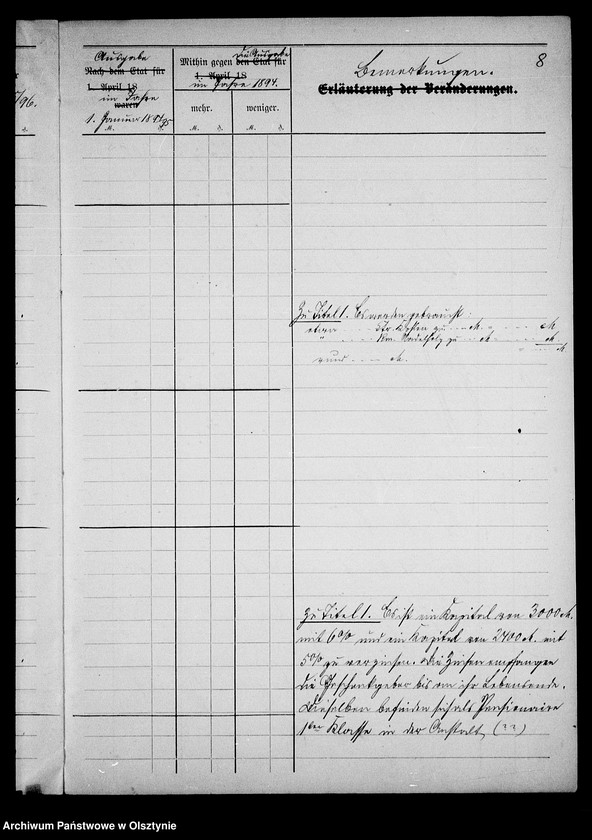 8
/96.
Ausgabe
Nach dem Etat für
1. April 18
im Jahre
waren
1. Januar 18
M.
Mithin gegen den Etat für
die Ausgabe
1. April 18
im Jahre 1894.
mehr.
weniger.
M.
M.
Bemerkungen.
Erläuterung der Veränderungen.
Zu Titel 1. Es werden gebraucht:
etwa Ctr. Kohlen zu M. M.
" Rm. Nadelholz zu M. M.
rund M.
Zu Titel 1. Es ist ein Kapital von 3000 M.
mit 6% und ein Kapital von 2400 M. mit
5% zu verzinsen. Die Zinsen empfangen
die Geschenkgeber bis an ihr Lebensende.
Dieselben befinden sich als Pensionaire
1ter Klasse in der Anstalt (??)
Archiwum Państwowe w Olsztynie